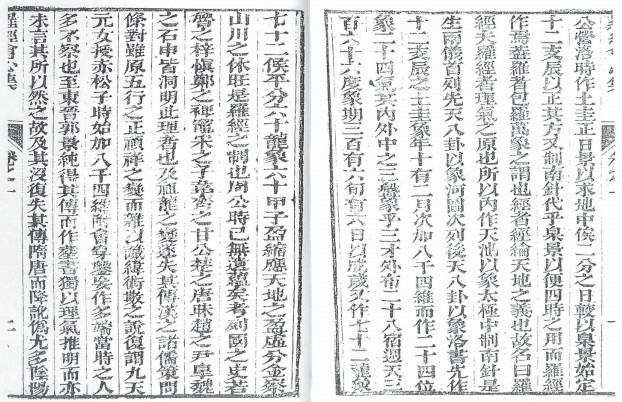 公營洛時作土圭正日景以求地中俟二分之日較以泉景始定
十二支辰以正其方又制南針代乎泉景以便四時之用而羅經
作焉蓋羅者包羅萬象之謂也經者經綸天地之義也故名曰羅
經夫羅經者理氣之原也所以內作天池以象太極中制南針是
生兩儀首列先天八卦以象河圖次列後天八卦以象洛書先作
十二支辰之土圭象年十有二月次加八千四維而作二十四位
象二十四氣其內外中之三盤象乎三才外布二十八宿週天三
百六十六度象期三百有六旬有六日以成歲又作七十二
七十二候平分六十龍象六十甲子盈縮應天地之盈虛分金察
山川之休旺是羅經之制也周公時已無遺蘊矣者列國之史若
魯之梓慎鄭之裨竈宋之子韋齊之甘公楚之唐昧趙之尹皋魏
之石申皆洞明此理者也及祖龍之變遂失其傳漢之諸儒策問
條對雖原五行之正禎祥之變而雜以讖緯術數之說復謂九天
元女授赤松子時始加八千四維附會穿鑿妄作多端當時之人
多不察也至東晉郭景純得其傳而作葬書獨以理氣推明而亦
未言其所以然之故及其沒復失其傳隋唐而降訛偽尤多陰陽
羅經會心集
卷之一